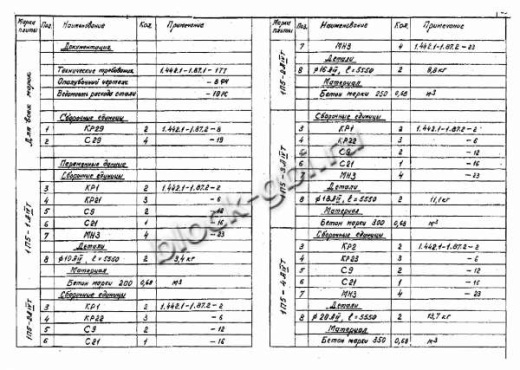 Марка плиты Поз. Наименование Кол. Примечание
Для всех марок
Документация
Технические требования 1.442.1-1.87.1-1ТТ
Опалубочный чертеж
Ведомость расхода стали
Сборочные единицы
1 КР29 2 1.442.1-1.87.2-8
2 С29 4 -19
Переменные данные
Сборочные единицы
3 КР1 2 1.442.1-1.87.2-2
4 КР21 3 -6
5 С9 2 -12
6 С21 1 -16
7 МН3 4 -23
Детали
8 2
Материал
Бетон марки 200 0,68 м3
Сборочные единицы
3 КР1 2 1.442.1-1.87.2-2
4 КР22 3 -6
5 С9 2 -12
6 С21 1 -16
Марка плиты Поз. Наименование Кол. Примечание
7 МН3 4 1.442.1-1.87.2-23
Детали
8 ℓ=5550 2 8,8 кг
Материал
Бетон марки 250 0,68 м3
Сборочные единицы
3 КР1 2 1.442.1-1.87.2-2
4 КР22 3 -6
С9 2 -12
6 С21 1 -16
7 МН3 4 -23
Детали
8 ℓ=5550 2 11,1 кг
Материал
Бетон марки 300 0,68 м3
Сборочные единицы
3 КР2 2 1.442.1-1.87.2-2
4 КР23 3 -6
5 С9 2 -12
6 С21 1 -16
7 МН3 4 -23
Детали
8 ℓ=5550 2 13,7 кг
Материал
Бетон марки 350 0,68 м3
block-gbi.ru